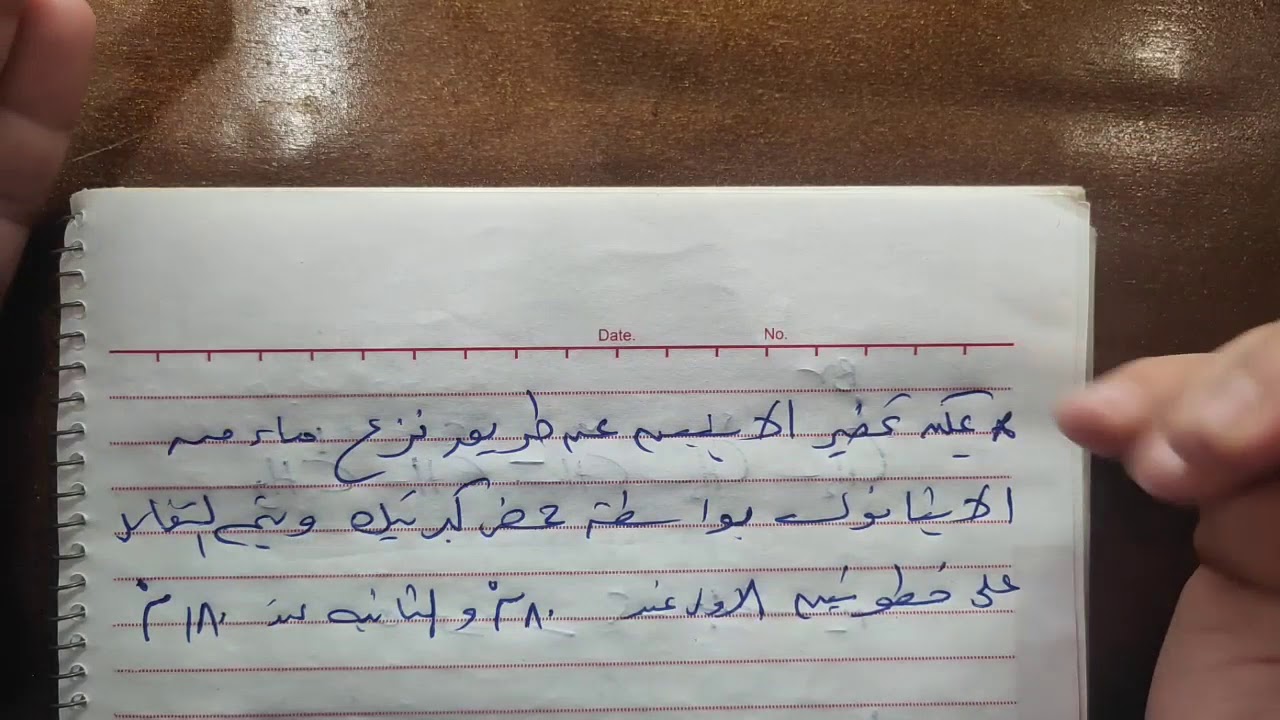 Date. No.
* يمكن تحضير الاثيلين عن طريق نزع ماء من
الايثانول بواسطة حمض كبريتيك ويتم التفاعل
على خطوتين الاولى عند ٨٠°م والثانيه عند ١٨٠°م